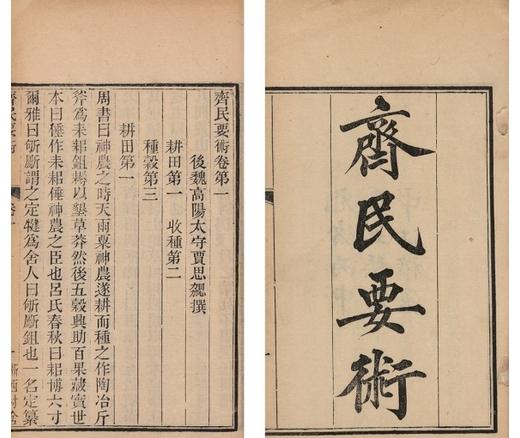 齊民要術
齊民要術卷第一
後魏高陽太守賈思勰撰
耕田第一　收種第二
種穀第三
耕田第一
周書曰神農之時天雨粟神農遂耕而種之作陶冶斤
斧為耒耜鉏耨以墾草莽然後五穀興助百果藏實世
本曰倕作耒耜倕神農之臣也呂氏春秋曰耜博六寸
爾雅曰斪斸謂之定犍為舍人曰斪斸鉏也一名定纂
齊民要術　卷一